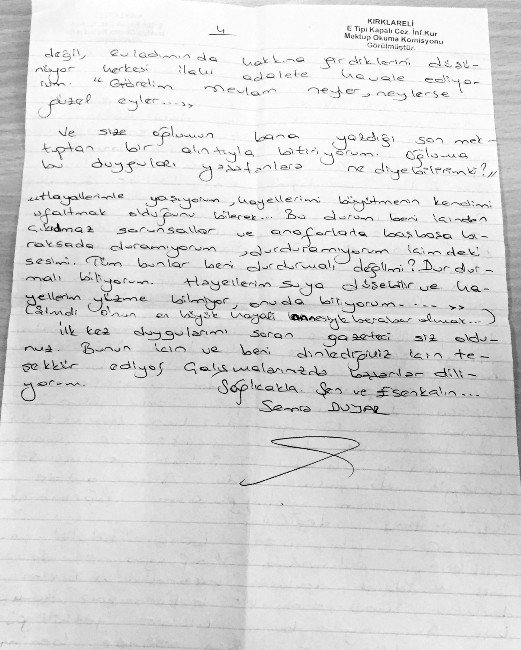 4
KIRKLARELİ
E Tipi Kapalı Cez. İnf.Kur
Mektup Okuma Komisyonu
Görülmüştür.
değil, evladımında hakkına girdiklerini düşü-
nüyor herkesi ilahi adalete havale ediyor-
um. "Görelim mevlam neyler, neylerse
güzel eyler...,,
Ve size oğlumun bana yazdığı son mek-
tuptan bir alıntıyla bitiriyorum. Oğluma
bu duyguları yaşatanlara ne diyebilirimki?"
"Hayallerimle yaşıyorum, hayellerimi büyütmenin kendimi
ufaltmak olduğunu bilerek... Bu durum beni içinden
çıkılmaz sorunsallar ve anaforlarla başbaşa bı-
raksada duramıyorum, durduramıyorum içimdeki
sesimi. Tüm bunlar beni durdurmalı değilmi? Durdur-
malı biliyorum. Hayellerim suya düşebilir ve ha-
yellerim yüzme bilmiyor, onuda biliyorum.... ,,
(Şimdi o'nun en büyük hayali annesiyle beraber olmak...)
İlk kez duygularımı soran gazeteci siz oldu-
nuz. Bunun için ve beni dinlediğiniz için te-
şekkür ediyor çalışmalarınızda başarılar dili-
yorum. Sağlıcakla. Şen ve Esenkalın...
Semra